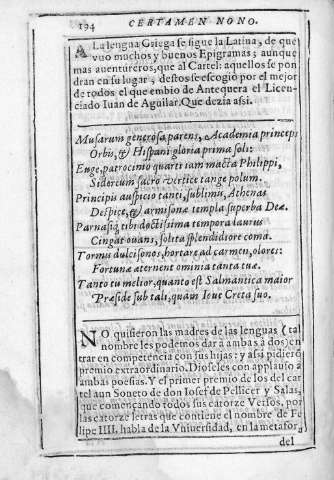 194 CERTAMEN NONO.
A La lengua Griega se sigue la Latina, de que
vuo muchos y buenos Epigramas; aunque
mas auentureros, que al Cartel: aquellos se pon
dran en su lugar, destos se escogiò por el mejor
de todos el que embio de Antequera el Licen-
ciado Iuan de Aguilar. Que dezia assi.
Musarum generosa parens, Academia princeps
Orbis, & Hispani gloria prima soli:
Euge, patrocinio quarti iam macta Philippi,
Sidereum sacro vertice tange polum.
Principis auspicio tanti, sublimis, Athenas
Despice, & armisonæ templa superba Deæ.
Parnasiq; tibi doctissima tempora laurus
Cingat ouans, solita splendidiore coma.
Tormus dulcisonos, hortare ad carmen, olores:
Fortunæ æternent omnia tanta tuæ.
Tanto tu melior, quanto est Salmantica maior
Præside sub tali, quam Ioue Creta suo.
NO quisieron las madres de las lenguas (tal
nombre les podemos dar a ambas a dos) en
trar en competencia con sus hijas: y assi pidierõ
premio extraordinario. Dioseles con applauso a
ambas poesias. Y el primer premio de los del car
tel a un Soneto de don Iosef de Pellicer y Salas,
que començando todos sus catorze Versos, por
las catorze letras que contiene el nombre de Fe
lipe IIII, habla de la Vniuersidad, en la metafor,
del